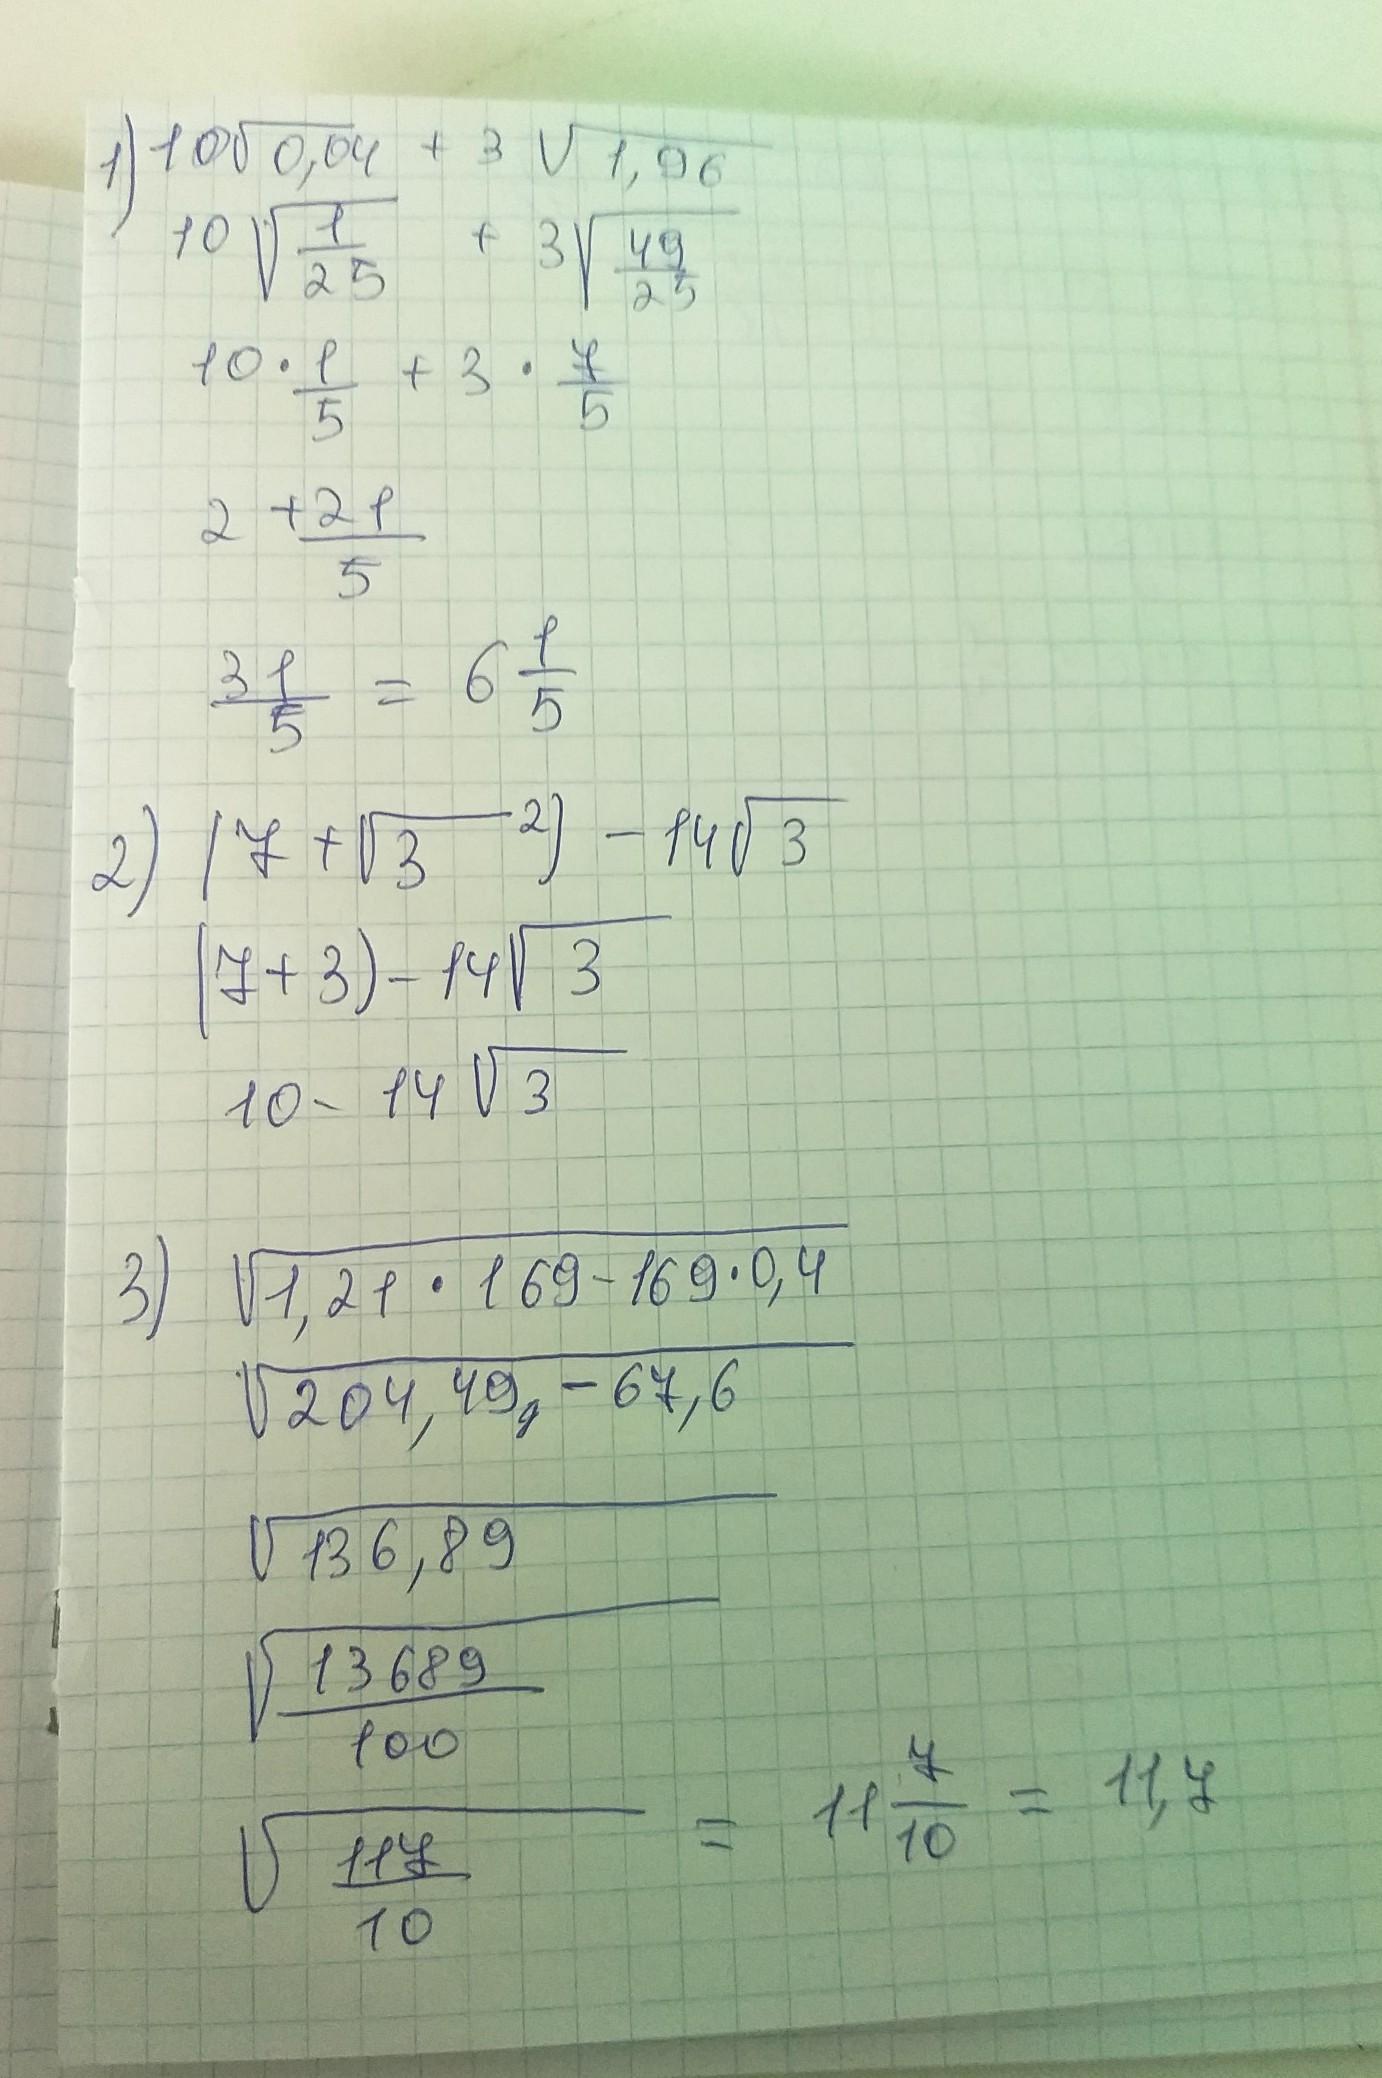 1) 10√0,04 + 3√1,96
10√(1/25) + 3√(49/25)
10·1/5 + 3·7/5
2 + 21/5
31/5 = 6 1/5
2) (7 + √3²) − 14√3
(7+3) − 14√3
10 − 14√3
3) √(1,21·169−169·0,4)
√(204,49, − 67,6)
√136,89
√(13689/100)
√(117/10) = 11 7/10 = 11,7